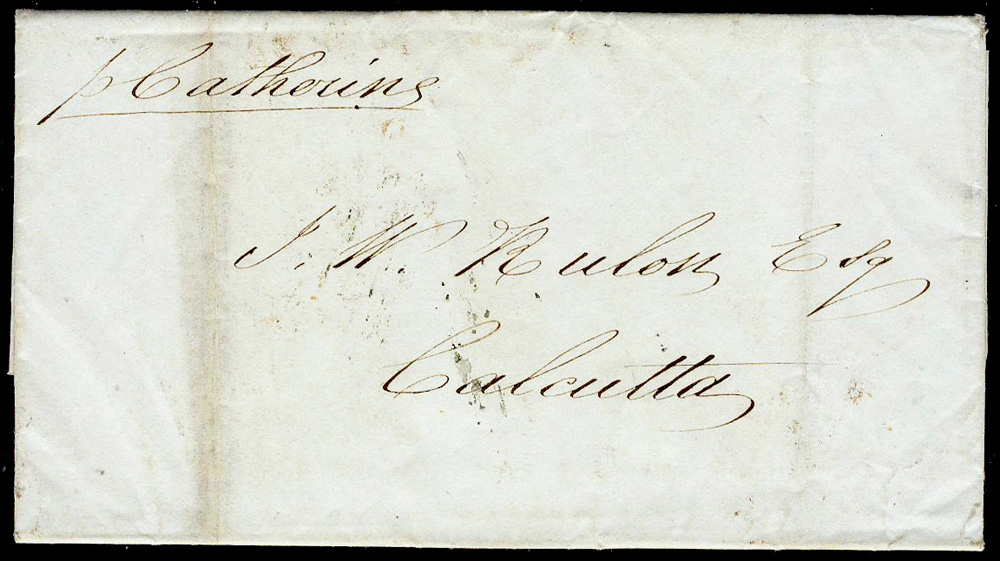 p Catherine
J. W. Rulon Esq
Calcutta